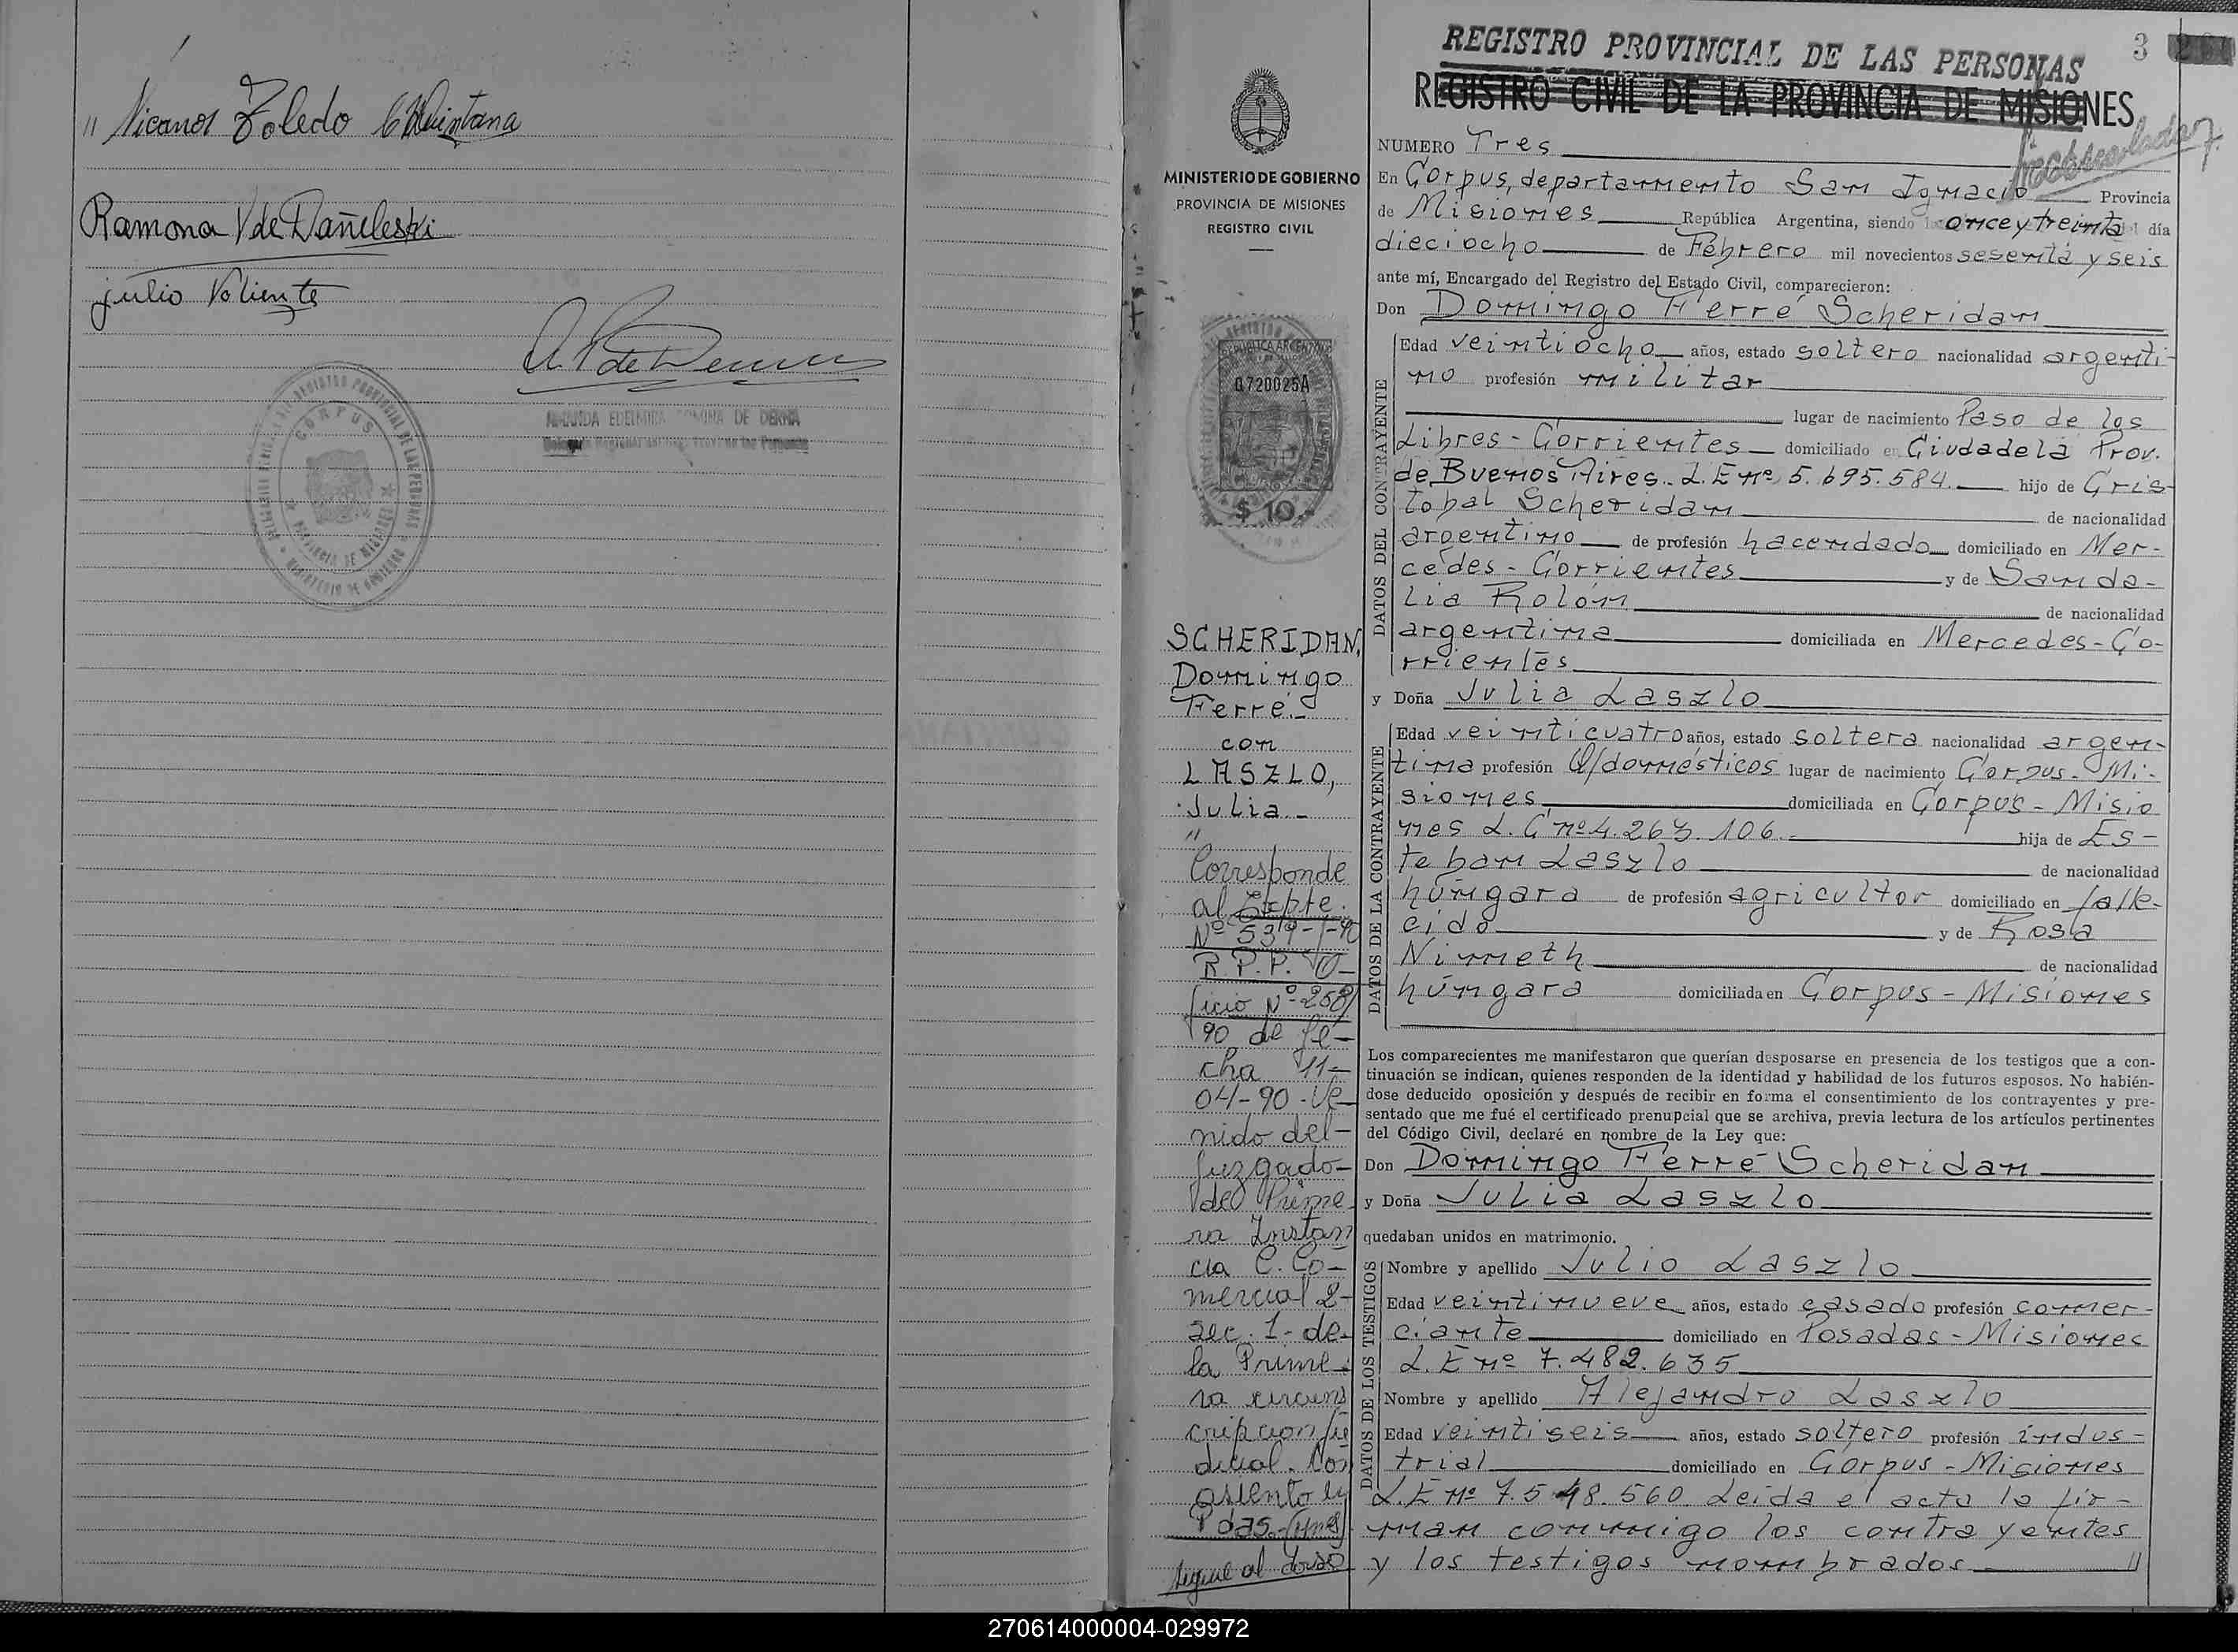 " Nicanor Toledo C Quintana
Ramona V de Dañeleski
julio Valiente
DE DERNA
CORPUS
MINISTERIO DE GOBIERNO
PROVINCIA DE MISIONES
REGISTRO CIVIL
REPUBLICA ARGENTINA
0720025A
$ 10
SCHERIDAN,
Domingo
Ferré.-
con
LASZLO,
Julia.-
"
Corresponde
al Expte.
R.P.P. O-
ficio Nº 268/
90 de fe-
cha 11-
04-90-Ve-
nido del-
Juzgado-
de Prime
ra Instan
cia C. Co-
mercial 2-
sec. 1- de-
la Prime-
ra circuns
cripcion ju
dicial. Con
asiento en
Pdas. Mnes
sigue al dorso
REGISTRO PROVINCIAL DE LAS PERSONAS
3
REGISTRO CIVIL DE LA PROVINCIA DE MISIONES
NUMERO Tres
En Corpus, departamento San Ignacio Provincia
de Misiones República Argentina, siendo once y treinta del día
dieciocho de Febrero mil novecientos sesenta y seis
ante mí, Encargado del Registro del Estado Civil, comparecieron:
Don Domingo Ferré Scheridan
DATOS DEL CONTRAYENTE
Edad veintiocho años, estado soltero nacionalidad argenti-
no profesión militar
lugar de nacimiento Paso de los
Libres - Corrientes domiciliado en Ciudadela Prov.
de Buenos Aires. L.E nº 5.695.584. hijo de Cris-
tobal Scheridan de nacionalidad
argentino de profesión hacendado domiciliado en Mer-
cedes - Corrientes y de Sanda-
lia Rolón de nacionalidad
argentina domiciliada en Mercedes - Co-
rrientes
y Doña Julia Laszlo
DATOS DE LA CONTRAYENTE
Edad veinticuatro años, estado soltera nacionalidad argen-
tina profesión Q/domésticos lugar de nacimiento Corpus - Mi-
siones domiciliada en Corpus - Misio
nes L. C nº 4.263.106. hija de Es-
teban Laszlo de nacionalidad
húngara de profesión agricultor domiciliado en falle-
cido y de Rosa
Nimeth de nacionalidad
húngara domiciliada en Corpus - Misiones
Los comparecientes me manifestaron que querían desposarse en presencia de los testigos que a con-
tinuación se indican, quienes responden de la identidad y habilidad de los futuros esposos. No habién-
dose deducido oposición y después de recibir en forma el consentimiento de los contrayentes y pre-
sentado que me fué el certificado prenupcial que se archiva, previa lectura de los artículos pertinentes
del Código Civil, declaré en nombre de la Ley que:
Don Domingo Ferré Scheridan
y Doña Julia Laszlo
quedaban unidos en matrimonio.
DATOS DE LOS TESTIGOS
Nombre y apellido Julio Laszlo
Edad veintinueve años, estado casado profesión comer-
ciante domiciliado en Posadas - Misiones
L. E nº 7.482.635
Nombre y apellido Alejandro Laszlo
Edad veintiseis años, estado soltero profesión indus-
trial domiciliado en Corpus - Misiones
L.E Nº 7.548.560. Leida el acta la fir-
man conmigo los contrayentes
y los testigos nombrados "
270614000004-029972